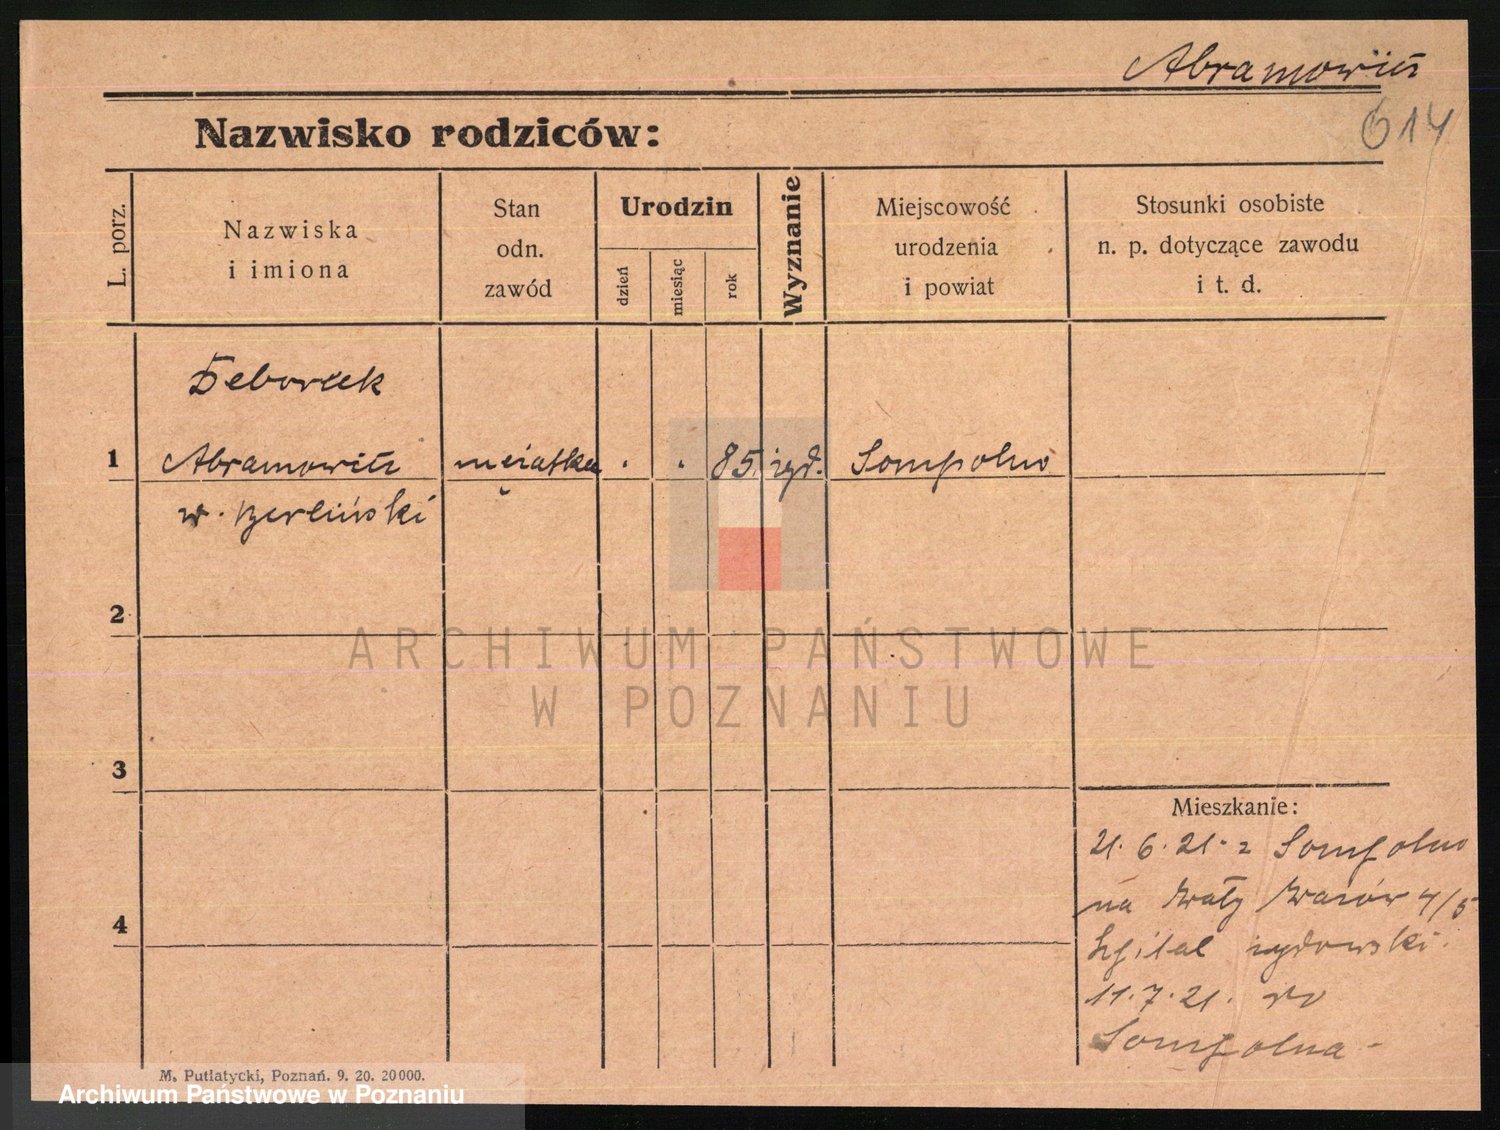 Abramowicz
614
Nazwisko rodziców:
L. porz.
Nazwiska
i imiona
Stan
odn.
zawód
Urodzin
dzień
miesiąc
rok
Wyznanie
Miejscowość
urodzenia
i powiat
Stosunki osobiste
n. p. dotyczące zawodu
i t. d.
1 Abramowicz mężatka . . 85. żyd. Sompolno
2
3
4
Mieszkanie:
21. 6. 21. z Sompolno
na Wały 4/5
Szpital żydowski.
11. 7. 21. do
Sompolna -
M. Putiatycki, Poznań. 9. 20. 20000.
ARCHIWUM PAŃSTWOWE
W POZNANIU
Archiwum Państwowe w Poznaniu